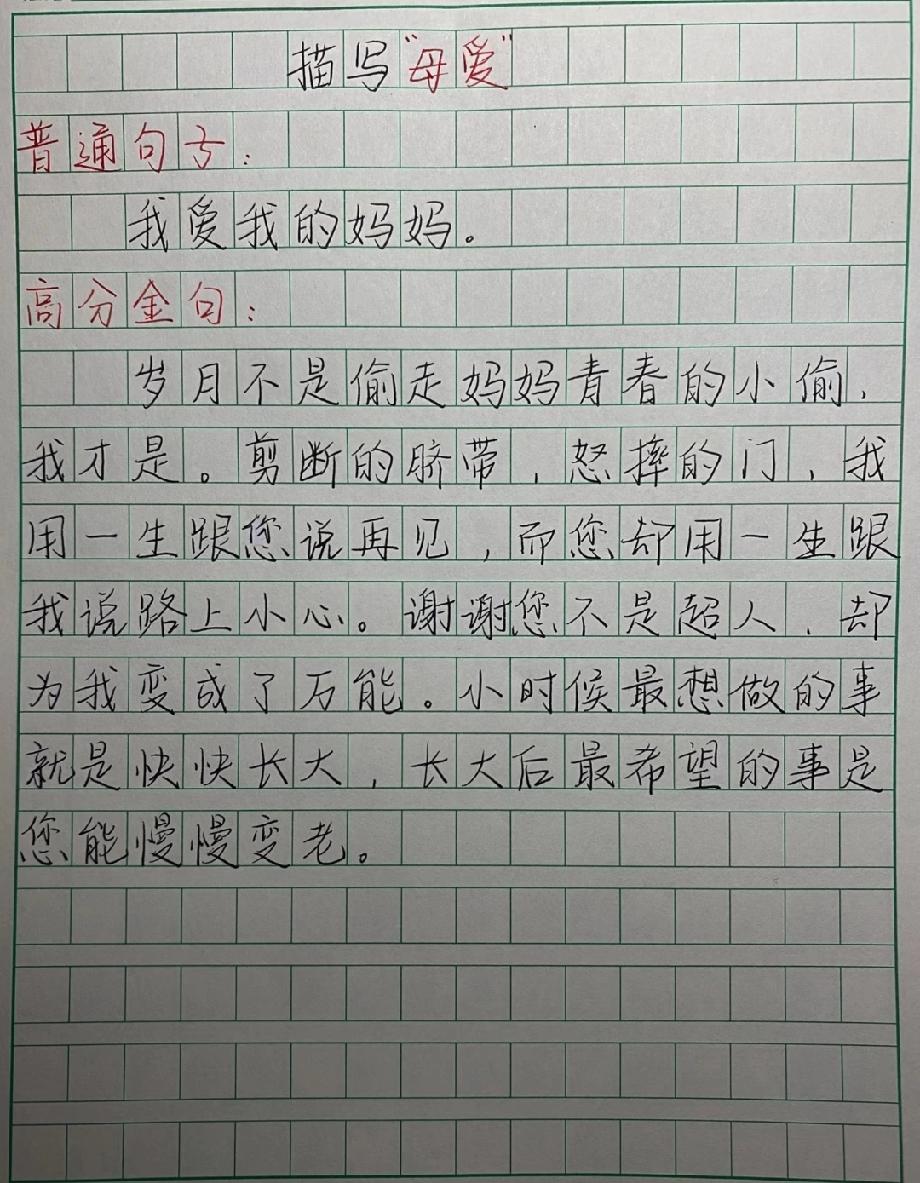 描写"母爱"
普通句子：
我爱我的妈妈。
高分金句：
岁月不是偷走妈妈青春的小偷，
我才是。剪断的脐带，怒摔的门，我
用一生跟您说再见，而您却用一生跟
我说路上小心。谢谢您不是超人，却
为我变成了万能。小时候最想做的事
就是快快长大，长大后最希望的事是
您能慢慢变老。